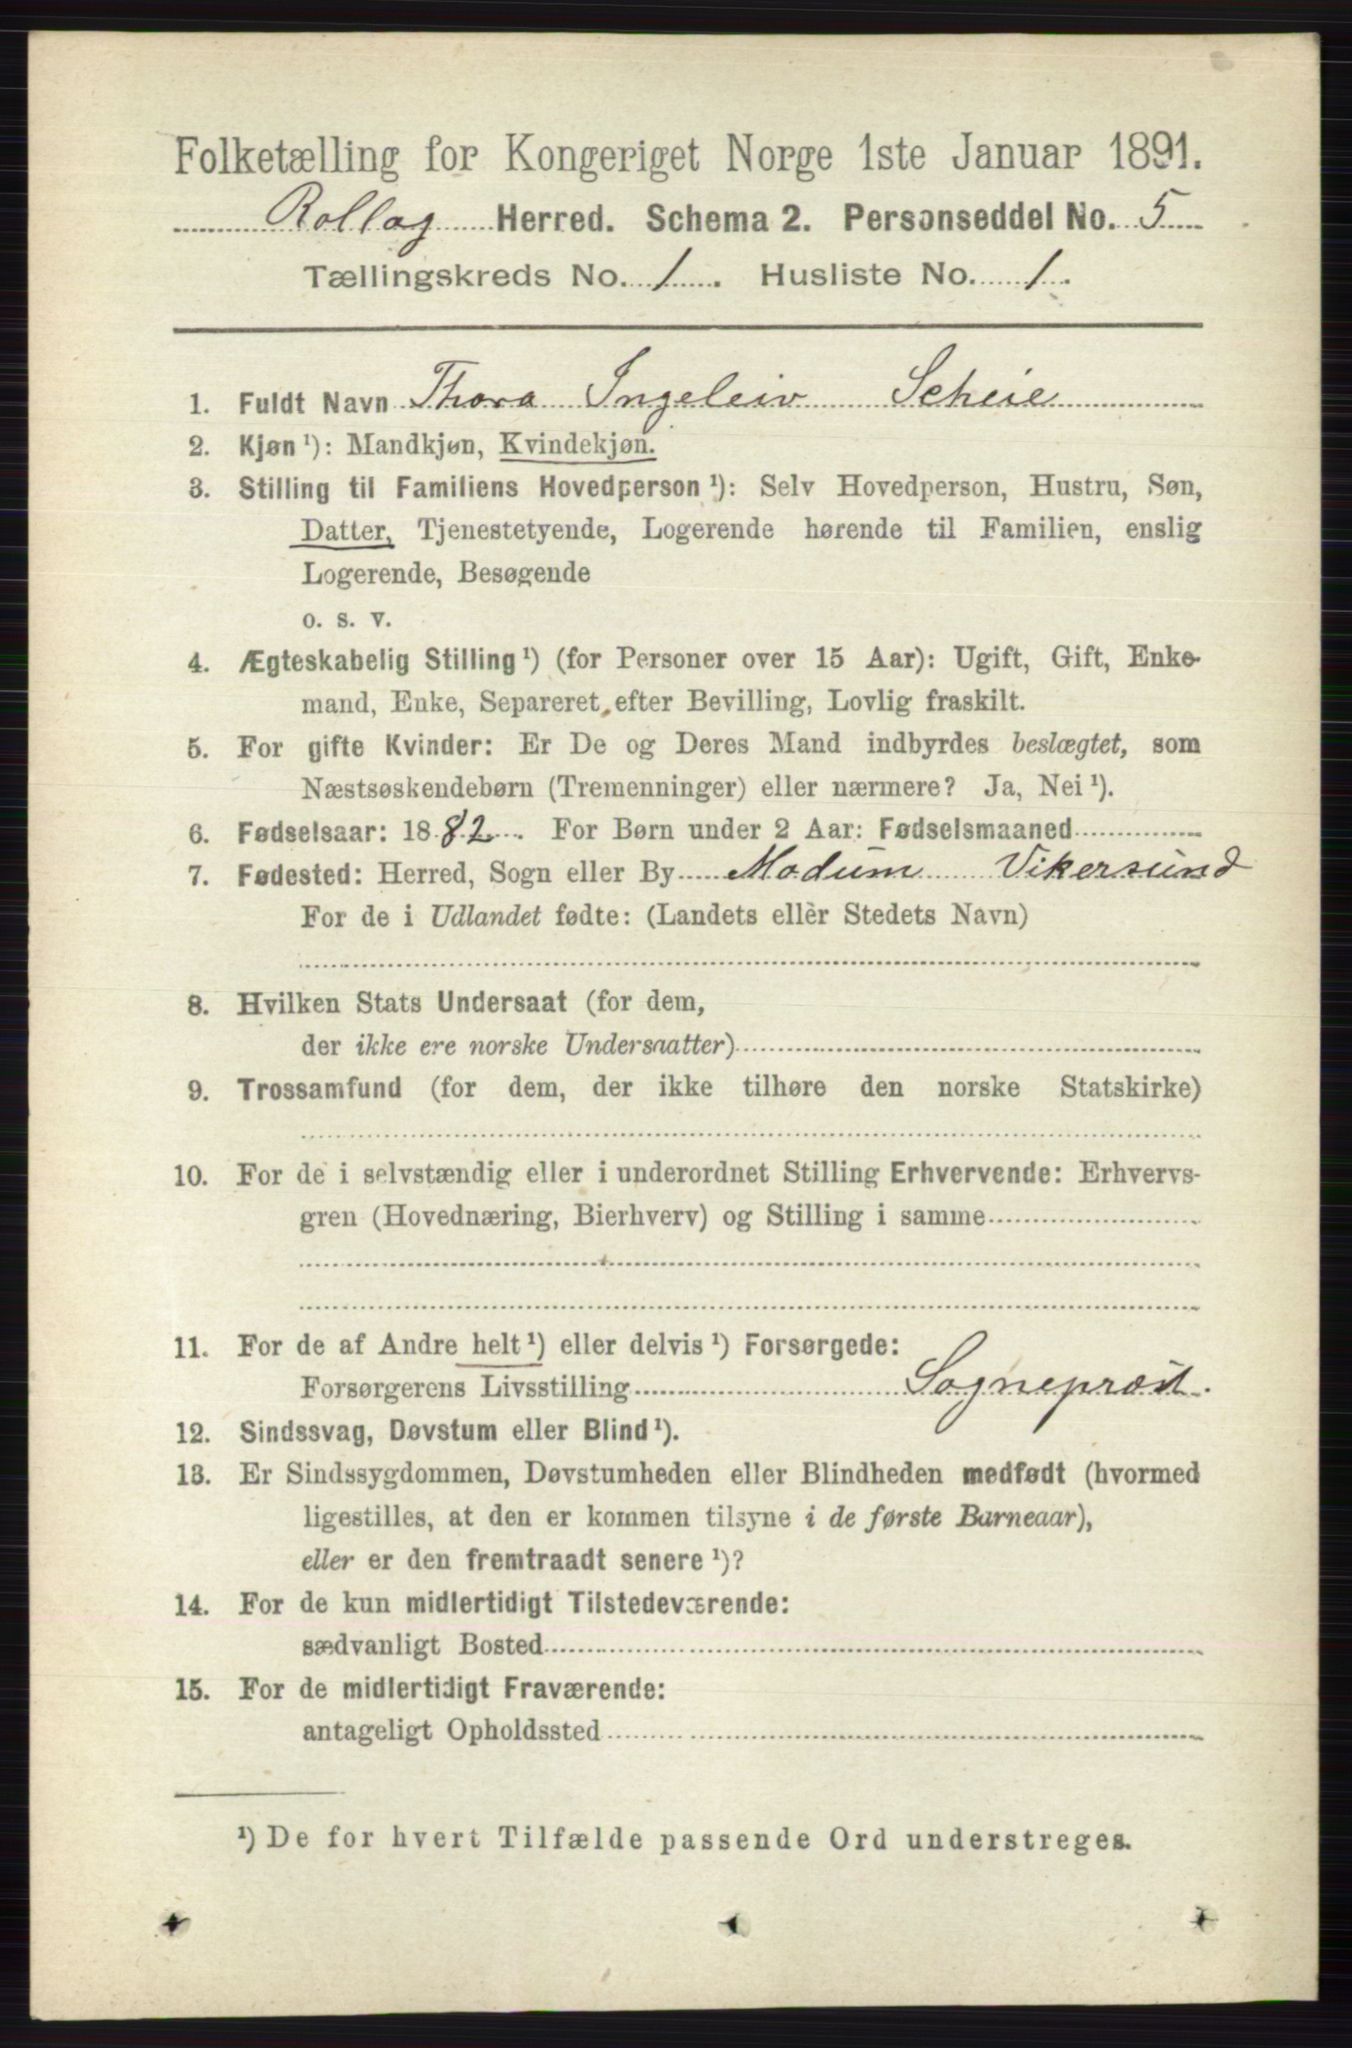 Folketælling for Kongeriget Norge 1ste Januar 1891.
Rollag Herred. Schema 2. Personseddel No. 5
Tællingskreds No. 1. Husliste No. 1.
1. Fuldt Navn Thora Ingeleiv Scheie
2. Kjøn ¹): Mandkjøn, Kvindekjøn.
3. Stilling til Familiens Hovedperson ¹): Selv Hovedperson, Hustru, Søn,
Datter, Tjenestetyende, Logerende hørende til Familien, enslig
Logerende, Besøgende
o. s. v.
4. Ægteskabelig Stilling ¹) (for Personer over 15 Aar): Ugift, Gift, Enke-
mand, Enke, Separeret efter Bevilling, Lovlig fraskilt.
5. For gifte Kvinder: Er De og Deres Mand indbyrdes beslægtet, som
Næstsøskendebørn (Tremenninger) eller nærmere? Ja, Nei ¹).
6. Fødselsaar: 1882. For Børn under 2 Aar: Fødselsmaaned
7. Fødested: Herred, Sogn eller By Modum Vikersund
For de i Udlandet fødte: (Landets eller Stedets Navn)
8. Hvilken Stats Undersaat (for dem,
der ikke ere norske Undersaatter)
9. Trossamfund (for dem, der ikke tilhøre den norske Statskirke)
10. For de i selvstændig eller i underordnet Stilling Erhvervende: Erhvervs-
gren (Hovednæring, Bierhverv) og Stilling i samme
11. For de af Andre helt ¹) eller delvis ¹) Forsørgede:
Forsørgerens Livsstilling Sogneprest.
12. Sindssvag, Døvstum eller Blind ¹).
13. Er Sindssygdommen, Døvstumheden eller Blindheden medfødt (hvormed
ligestilles, at den er kommen tilsyne i de første Barneaar),
eller er den fremtraadt senere ¹)?
14. For de kun midlertidigt Tilstedeværende:
sædvanligt Bosted
15. For de midlertidigt Fraværende:
antageligt Opholdssted
¹) De for hvert Tilfælde passende Ord understreges.